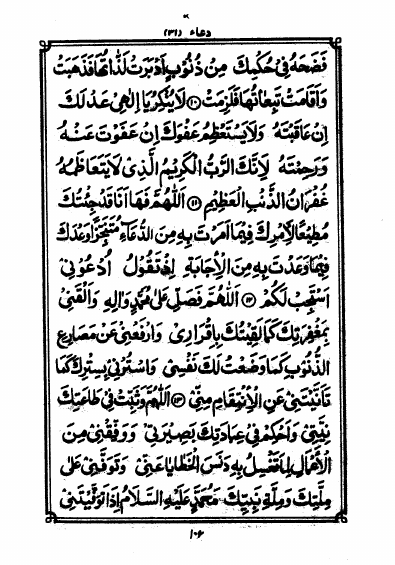 دعاء (٣١)
فَضَحَهُ فِيْ حُكْمِكَ مِنْ ذُنُوْبٍ أَدْبَرَتْ لَذَّاتُهَا فَذَهَبَتْ
وَأَقَامَتْ تَبِعَاتُهَا فَلَزِمَتْ ⑩ لَا يُنْكِرُ يَا إِلٰهِيْ عَدْلَكَ
إِنْ عَاقَبْتَهٗ وَلَا يَسْتَعْظِمُ عَفْوَكَ إِنْ عَفَوْتَ عَنْهُ
وَرَحِمْتَهٗ لِأَنَّكَ الرَّبُّ الْكَرِيْمُ الَّذِيْ لَا يَتَعَاظَمُهٗ
غُفْرَانُ الذَّنْبِ الْعَظِيْمِ ⑪ اَللّٰهُمَّ فَهَا أَنَا قَدْ جِئْتُكَ
مُطِيْعًا لِأَمْرِكَ فِيْمَا أَمَرْتَ بِهٖ مِنَ الدُّعَاءِ مُتَنَجِّزًا وَعْدَكَ
فِيْمَا وَعَدْتَ بِهٖ مِنَ الْإِجَابَةِ إِذْ تَقُوْلُ اُدْعُوْنِيْ
أَسْتَجِبْ لَكُمْ ⑫ اَللّٰهُمَّ فَصَلِّ عَلٰى مُحَمَّدٍ وَاٰلِهٖ وَالْقَنِيْ
بِمَغْفِرَتِكَ كَمَا لَقِيْتُكَ بِإِقْرَارِيْ وَارْفَعْنِيْ عَنْ مَصَارِعِ
الذُّنُوْبِ كَمَا وَضَعْتُ لَكَ نَفْسِيْ وَاسْتُرْنِيْ بِسِتْرِكَ كَمَا
تَأَنَّيْتَنِيْ عَنِ الْاِنْتِقَامِ مِنِّيْ ⑬ اَللّٰهُمَّ وَثَبِّتْ فِيْ طَاعَتِكَ
نِيَّتِيْ وَأَحْكِمْ فِيْ عِبَادَتِكَ بَصِيْرَتِيْ وَوَفِّقْنِيْ مِنَ
الْأَعْمَالِ لِمَا تَغْسِلُ بِهٖ دَنَسَ الْخَطَايَا عَنِّيْ وَتَوَفَّنِيْ عَلٰى
مِلَّتِكَ وَمِلَّةِ نَبِيِّكَ مُحَمَّدٍ عَلَيْهِ السَّلَامُ إِذَا تَوَفَّيْتَنِيْ
١٠٦